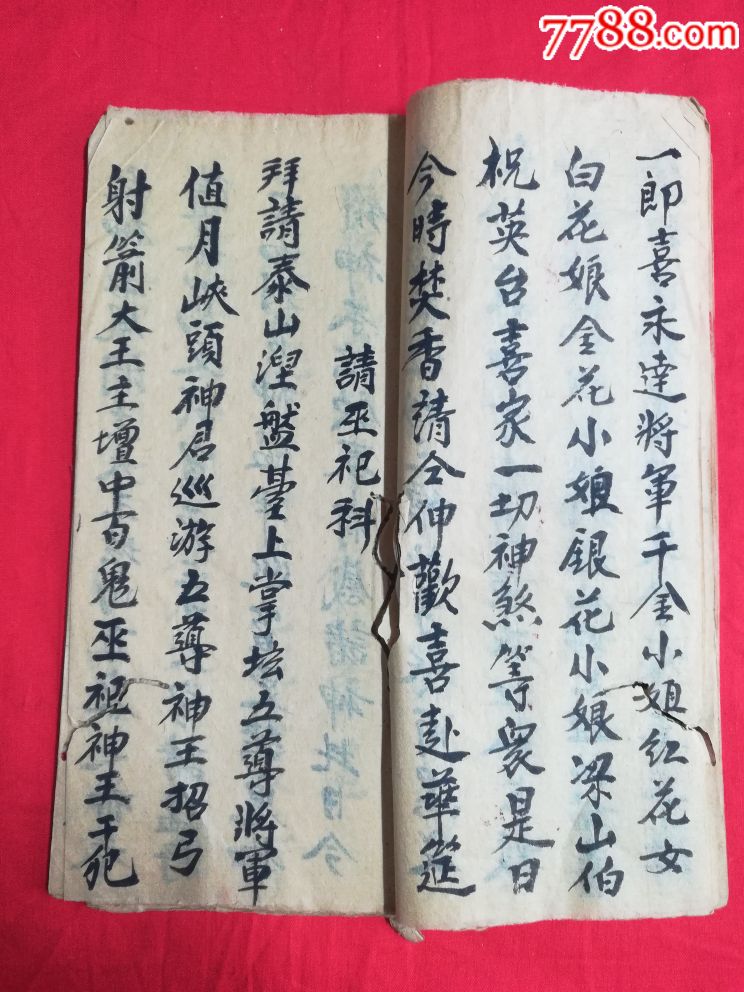 7788.com
一郎喜永達將軍千金小姐红花女
白花娘金花小娘银花小娘梁山伯
祝英台喜家一切神煞等衆是日
今時焚香請仝伸歡喜赴華筵
請巫祀科
拜請泰山涅盤臺上掌坛五導將軍
值月峽頭神君巡游五導神王招弓
射箭大王主壇中百鬼巫祀神王干